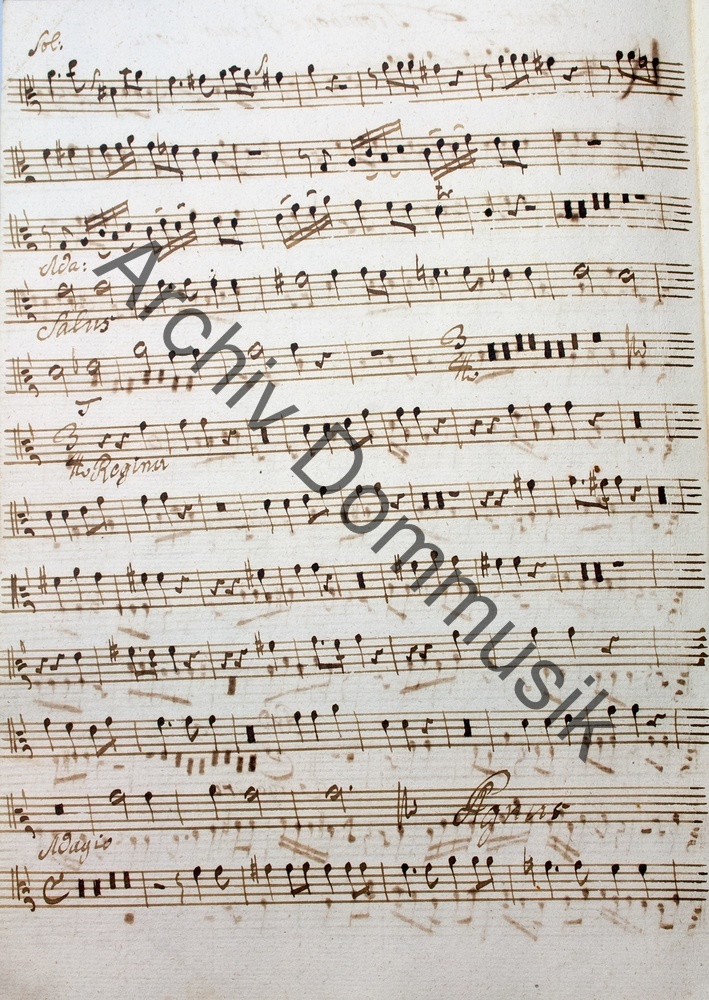 Sol:
Ada:
Salus
Regina
Agnus
Adagio
Archiv Dommusik